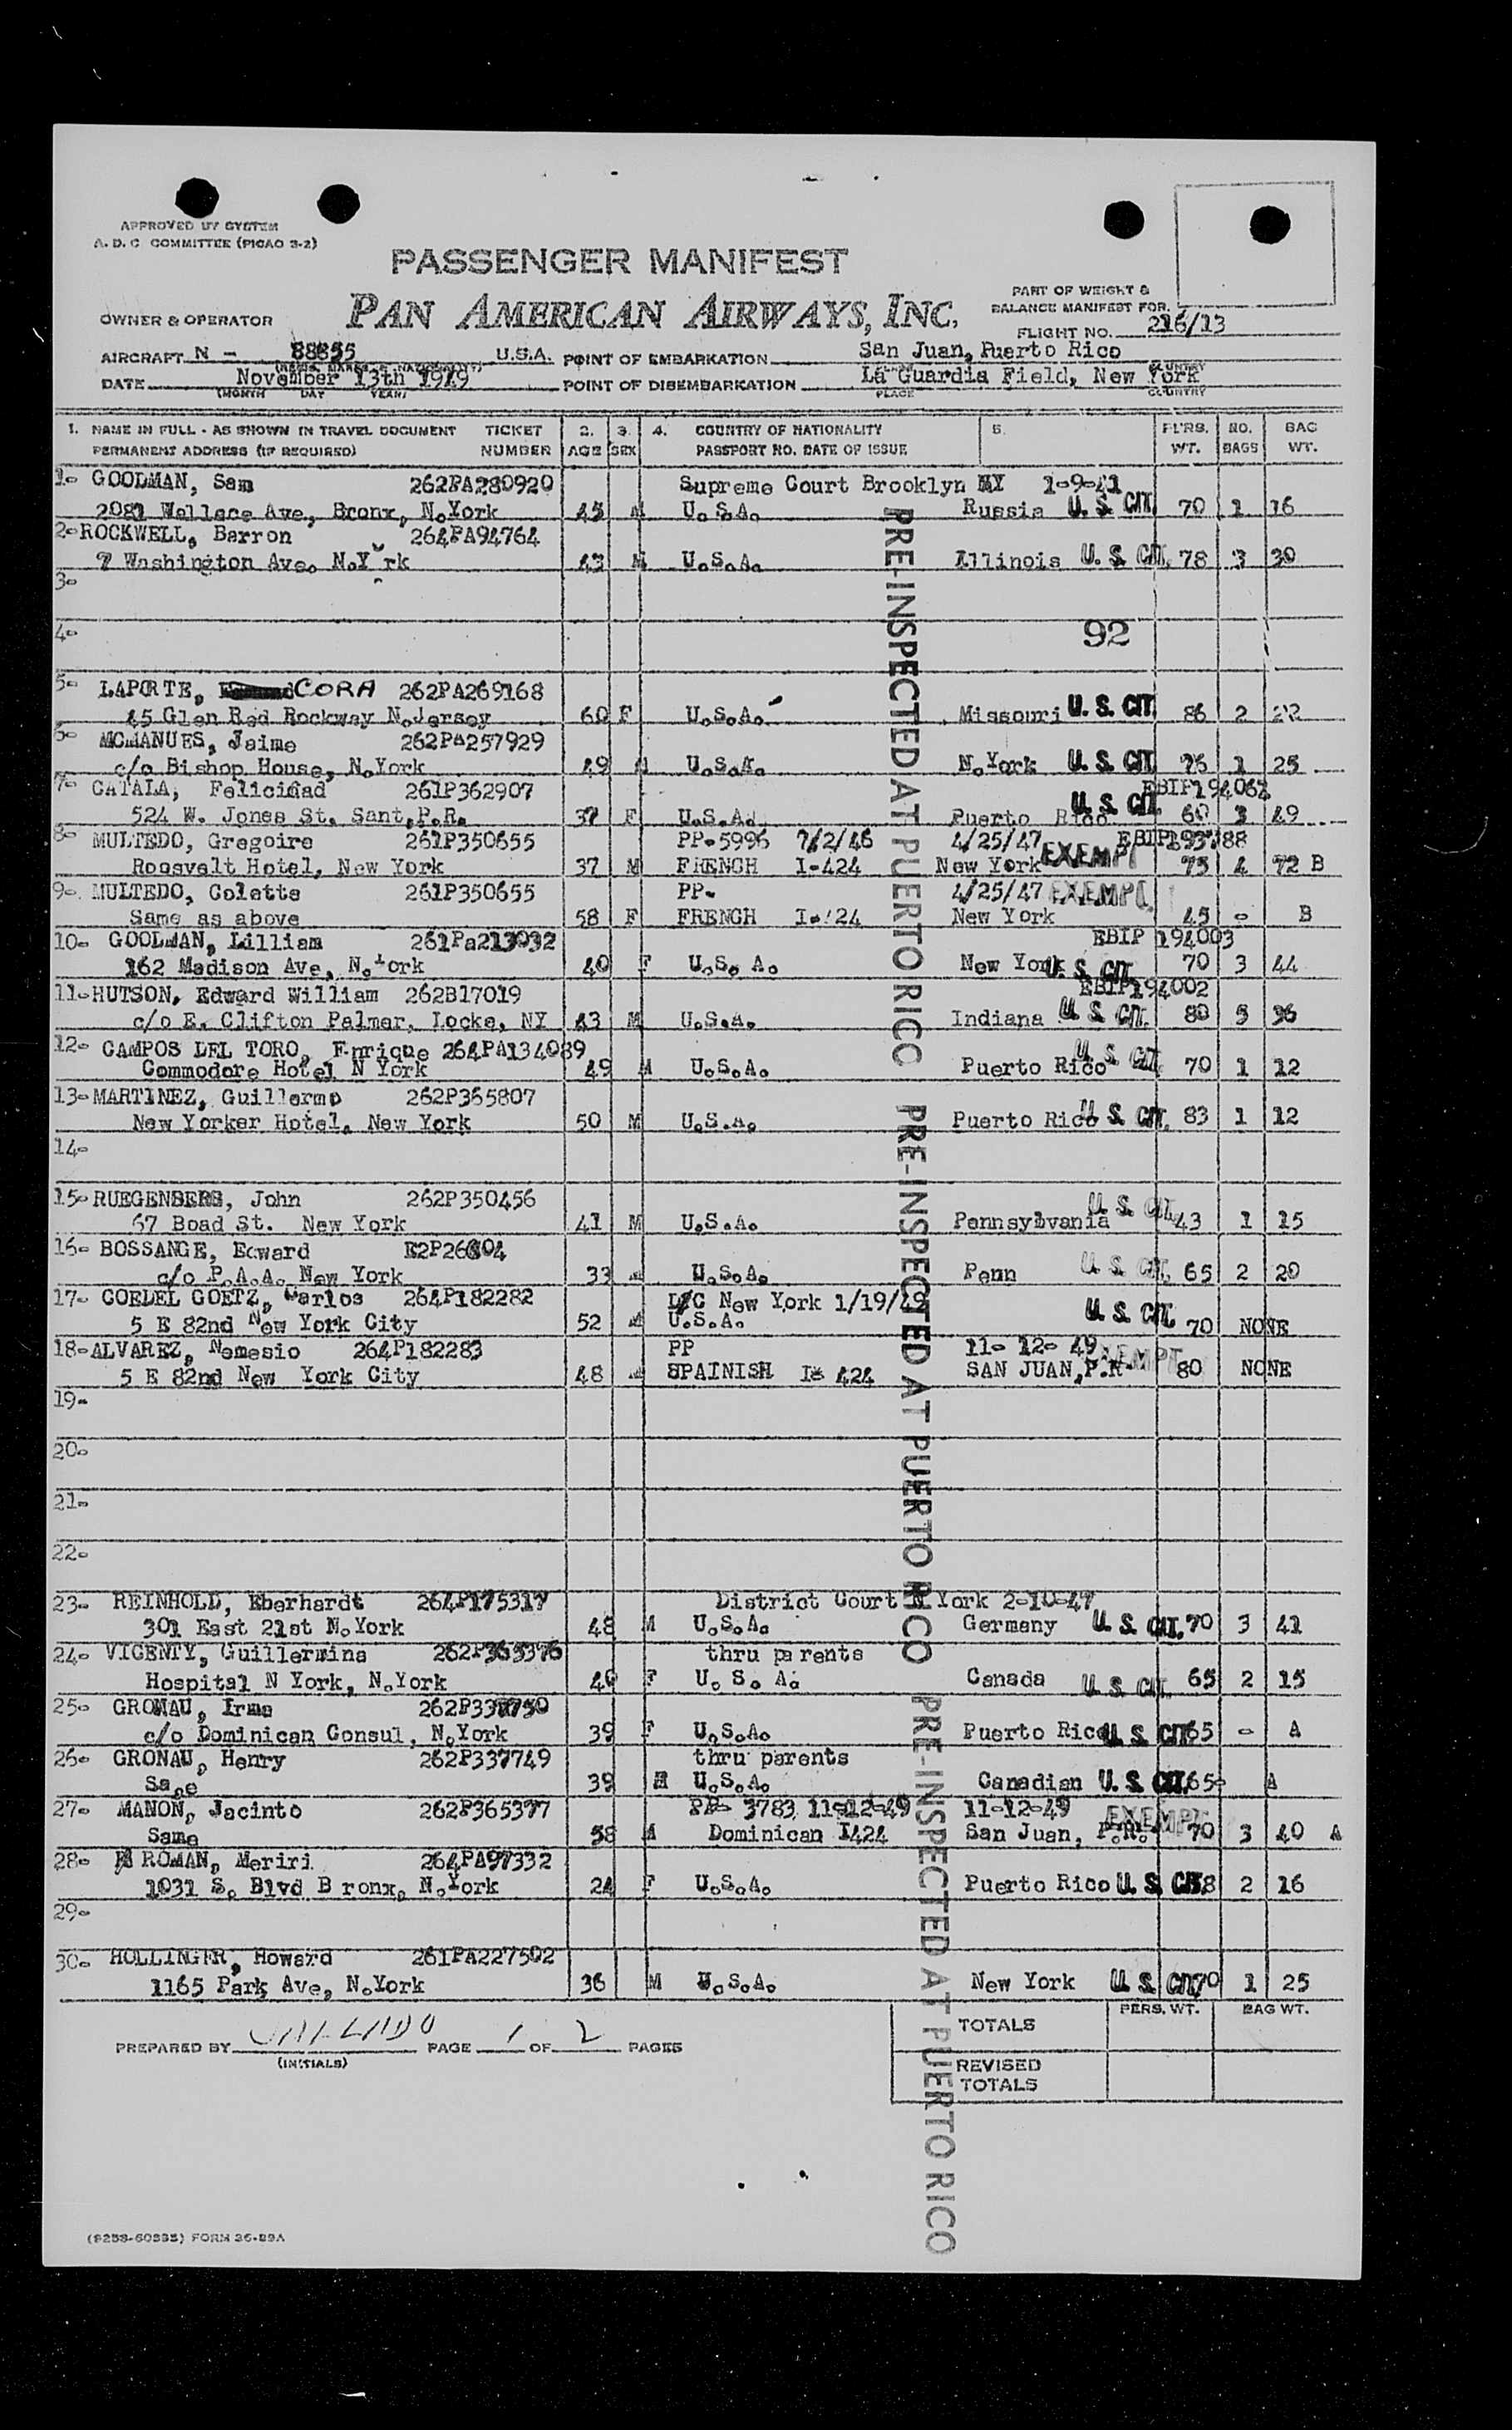 APPROVED BY SYSTEM
A. D. C COMMITTEE (PICAO 3-2)
PASSENGER MANIFEST
PAN AMERICAN AIRWAYS, INC.
PART OF WEIGHT &
BALANCE MANIFEST FOR
OWNER & OPERATOR
FLIGHT NO. 216/13
AIRCRAFT N - 88855 U.S.A. POINT OF EMBARKATION San Juan, Puerto Rico
DATE November 13th 1949 POINT OF DISEMBARKATION La Guardia Field, New York
(MONTH DAY YEAR) PLACE COUNTRY
1. NAME IN FULL - AS SHOWN IN TRAVEL DOCUMENT TICKET 2. 3. 4. COUNTRY OF NATIONALITY 5. PERS. NO. BAG
PERMANENT ADDRESS (IF REQUIRED) NUMBER AGE SEX PASSPORT NO. DATE OF ISSUE WT. BAGS WT.
1- GOODMAN, Sam 262PA280920 Supreme Court Brooklyn NY 1-9-41
2081 Wallace Ave, Bronx, N.York 45 M U.S.A. Russia U. S. CIT. 70 1 16
2- ROCKWELL, Barron 264PA94764
7 Washington Ave. N.York 43 M U.S.A. Illinois U. S. CIT. 78 3 30
3-
4- 92
5- LAPORTE, CORA 262PA269168
45 Glen Rad Rockway N.Jersey 60 F U.S.A. Missouri U. S. CIT. 86 2 22
6- MCMANUES, Jaime 262PA257929
c/o Bishop House, N.York 49 M U.S.A. N.York U. S. CIT. 76 1 25
7- CATALA, Felicidad 261P362907 EBIP194064
524 W. Jones St. Sant.P.R. 37 F U.S.A. Puerto Rico U. S. CIT. 60 3 49
8- MULTEDO, Gregoire 261P350655 PP-5996 7/2/46 4/25/47 EBIP193788
Roosvelt Hotel, New York 37 M FRENCH I-424 New York EXEMPT 75 4 72 B
9- MULTEDO, Colette 261P350655 PP- 4/25/47 EXEMPT
Same as above 58 F FRENCH I-424 New York 45 - B
10- GOODMAN, Lilliam 261Pa213032 EBIP 194003
162 Madison Ave, N.York 40 F U.S. A. New York U. S. CIT. 70 3 44
11- HUTSON, Edward William 262B17019 EBIP194002
c/o E. Clifton Palmer, Locke, NY 43 M U.S.A. Indiana U. S. CIT. 80 5 96
12- CAMPOS DEL TORO, Enrique 264PA134089
Commodore Hotel N York 49 M U.S.A. Puerto Rico U. S. CIT. 70 1 12
13- MARTINEZ, Guillermo 262P365807
New Yorker Hotel, New York 50 M U.S.A. Puerto Rico U. S. CIT. 83 1 12
14-
15- RUEGENBERG, John 262P350456
67 Boad St. New York 41 M U.S.A. Pennsylvania U. S. CIT. 43 1 15
16- BOSSANGE, Edward
c/o P.A.A. New York 33 M U.S.A. Penn U. S. CIT. 65 2 20
17- GOEDEL GOETZ, Carlos 264P182282 D/C New York 1/19/49
5 E 82nd New York City 52 M U.S.A. U. S. CIT. 70 NONE
18- ALVAREZ, Nemesio 264P182283 PP 11- 12- 49
5 E 82nd New York City 48 M SPAINISH I- 424 SAN JUAN,P.R EXEMPT 80 NONE
19-
20-
21-
22-
23- REINHOLD, Eberhardt 264P175317 District Court N York 2-10-47
301 East 21st N.York 48 M U.S.A. Germany U. S. CIT. 70 3 41
24- VICENTY, Guillermina 262P365376 thru parents
Hospital N York, N.York 40 F U. S. A. Canada U. S. CIT. 65 2 15
25- GRONAU, Irma 262P337750
c/o Dominican Consul, N.York 39 F U.S.A. Puerto Rico U. S. CIT. 65 - A
26- GRONAU, Henry 262P337749 thru parents
Same 39 M U.S.A. Canadian U. S. CIT. 65- A
27- MANON, Jacinto 262P365377 PP- 3783 11-12-49 11-12-49
Same 58 M Dominican I424 San Juan, P.R. EXEMPT 70 3 40 A
28- ROMAN, Meriri 264PA97332
1031 S. Blvd Bronx, N.York 24 F U.S.A. Puerto Rico U. S. CIT. 58 2 16
29-
30- HOLLINGER, Howard 261PA227502
1165 Park Ave, N.York 36 M U.S.A. New York U. S. CIT. 70 1 25
PRE-INSPECTED AT PUERTO RICO PRE-INSPECTED AT PUERTO RICO PRE-INSPECTED AT PUERTO RICO
PERS. WT. BAG WT.
TOTALS
PREPARED BY PAGE 1 OF 2 PAGES
(INITIALS)
REVISED
TOTALS
FORM 36-89A